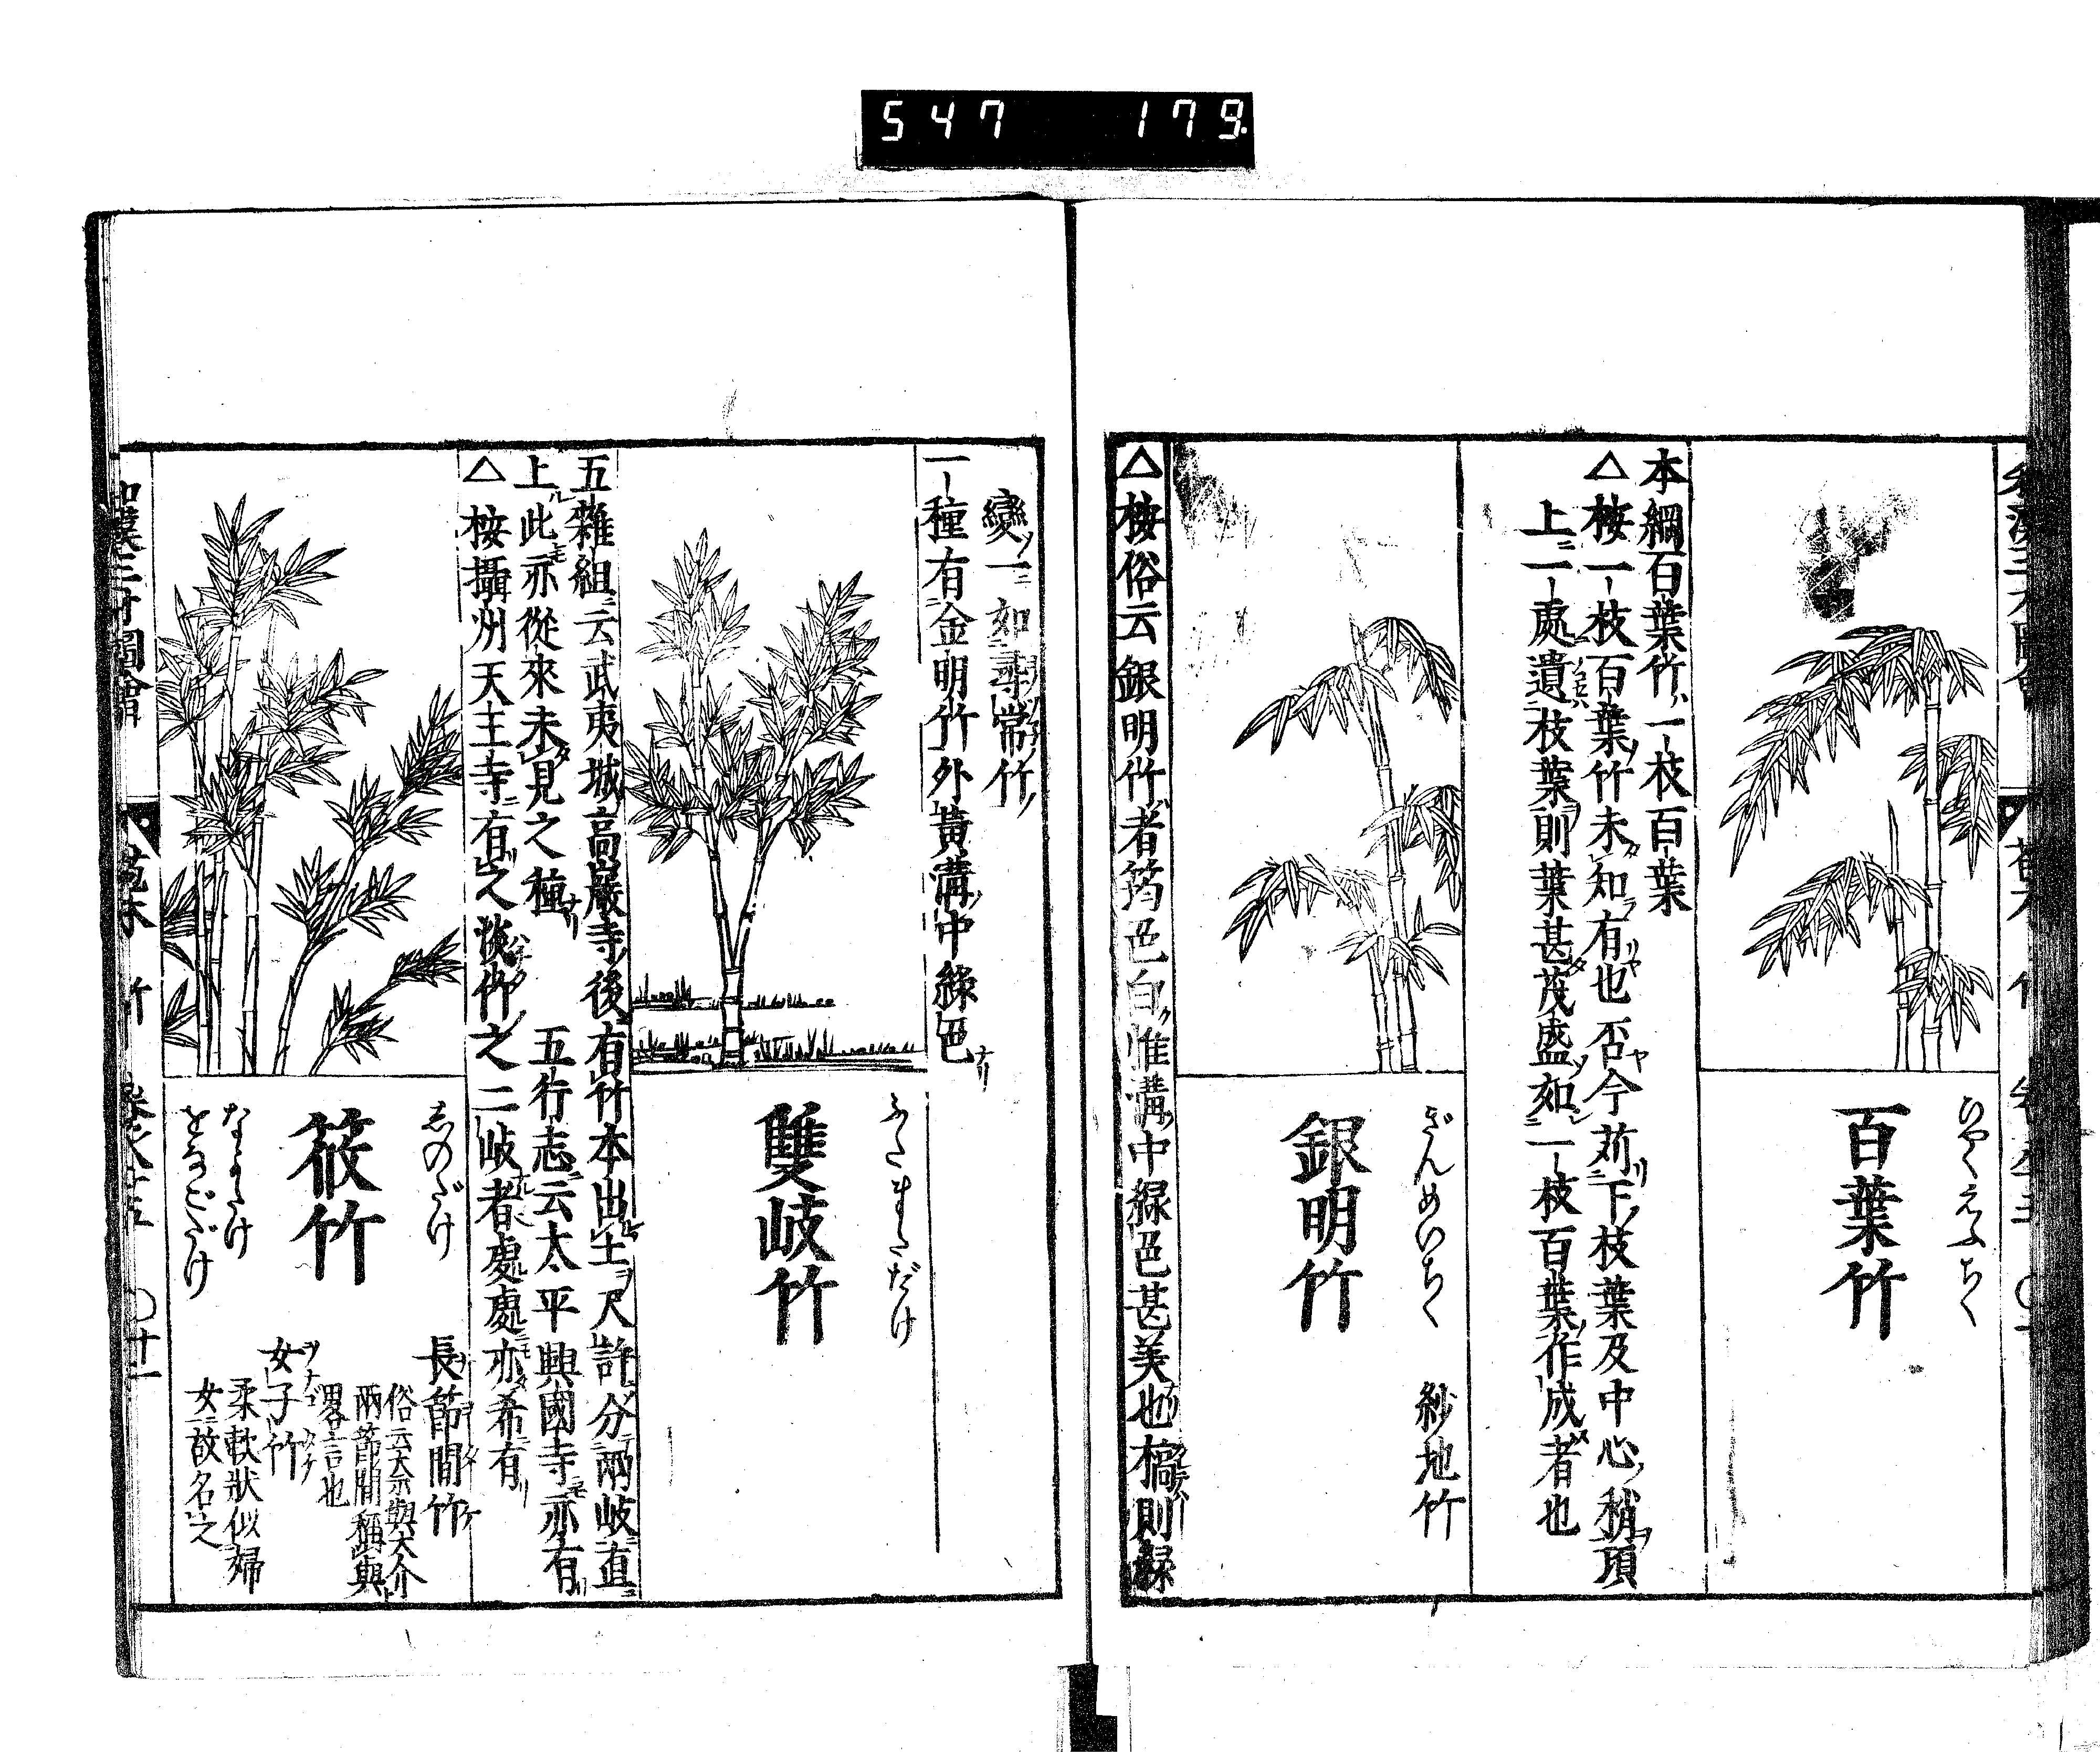 547 179
ひやくえふちく
百葉竹
本綱百葉竹一枝百葉
△按一枝百葉竹未知有也否今苅下枝葉及中心稍頂
上一處遺枝葉則葉甚茂盛如一枝百葉作成者也
ぎんめいちく
銀明竹
紗地竹
△按俗云銀明竹者筠色白惟溝中緑色甚美也槁則緑
變一如尋常竹
一種有金明竹外黄溝中緑色
ふたまただけ
雙岐竹
五雜組云武夷城高巖寺後有竹本出土尺許分兩岐直
上此亦從來未見之種 五行志云太平興國寺亦有
△按攝州天王寺有之淡竹之二岐者處處亦希有
しのだけ
筱竹
なよたけ
をなごだけ
長節間竹
俗云大奈與大介
兩節間稱與
畧言也
女子竹
柔軟狀似婦
女故名之
和漢三才圖會 苞木 竹 卷之八十五 〇十一